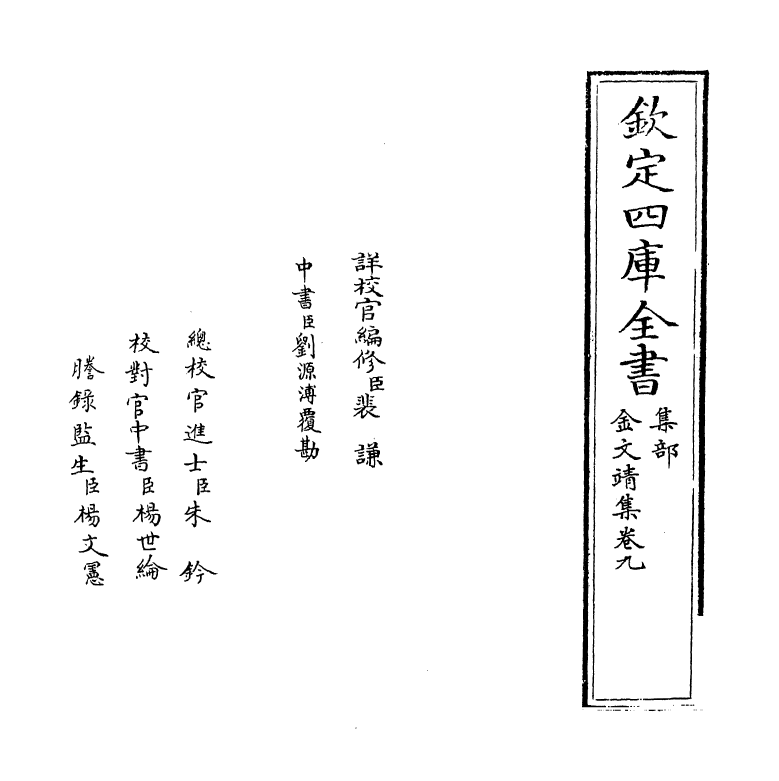 欽定四庫全書
集部
金文靖集卷九
詳校官編修臣裴謙
中書臣劉源溥覆勘
總校官進士臣朱鈐
校對官中書臣楊世綸
謄錄監生臣楊文㥣